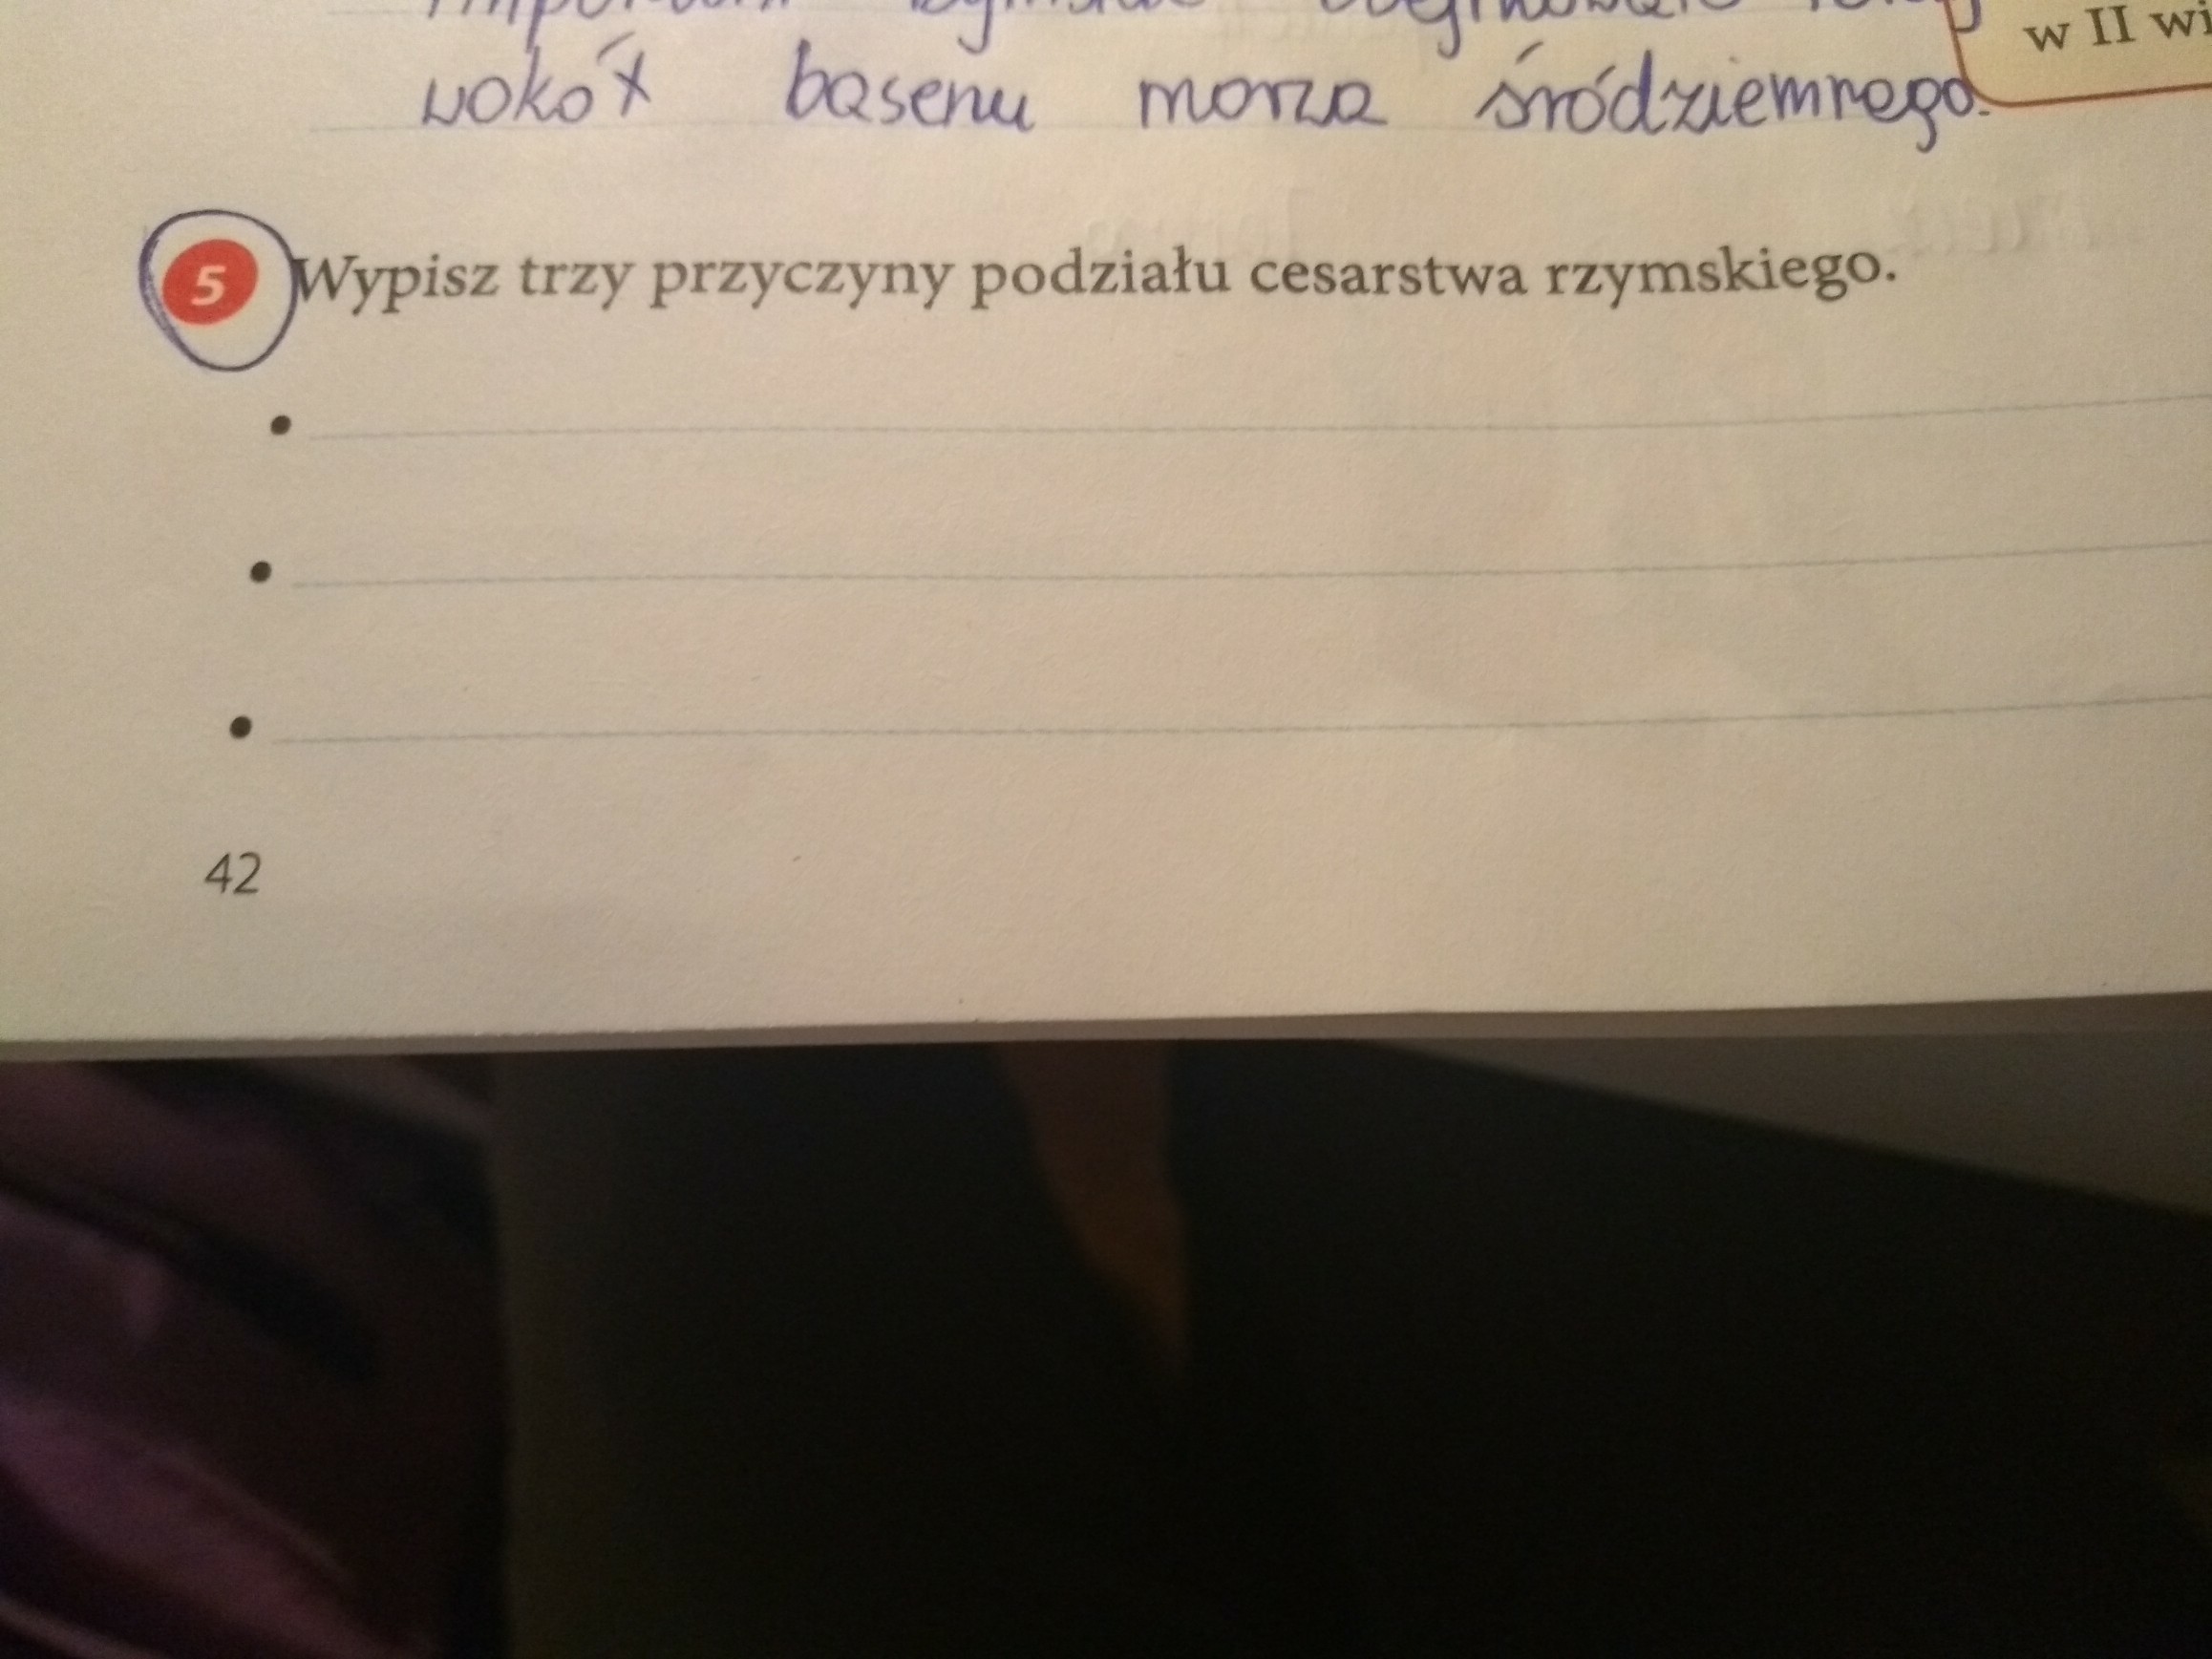 w II wi
wokół basenu morza śródziemnego.
5 Wypisz trzy przyczyny podziału cesarstwa rzymskiego.
•
•
•
42